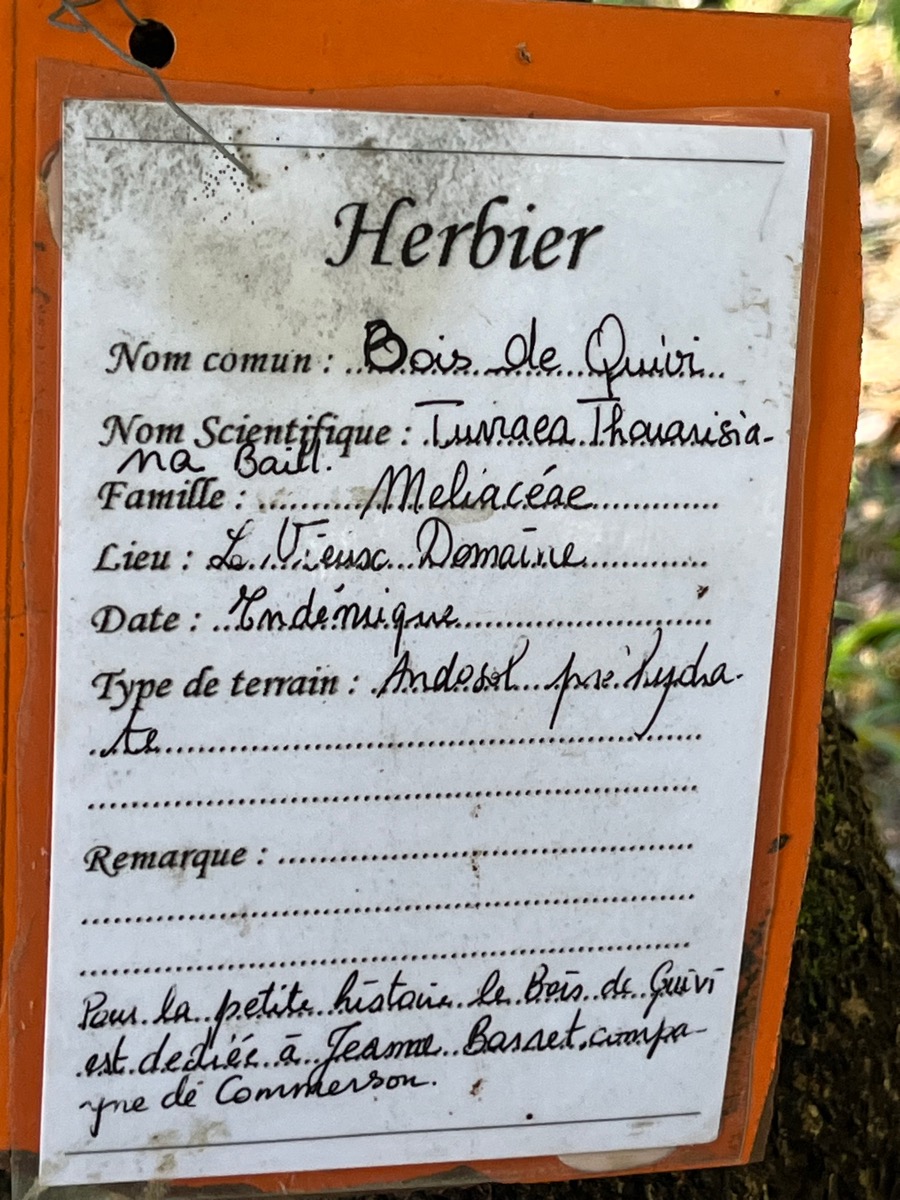 Herbier
Nom comun : Bois de Quivi
Nom Scientifique : Turraea Thouarisia-
na Baill.
Famille : Meliacéae
Lieu : Le Vieux Domaine
Date : Endémique
Type de terrain : Andosol pré'hydra-
te
Remarque :
Pour la petite histoire le Bois de Quivi
est dediée à Jeanne Barret, compa-
gne de Commerson.